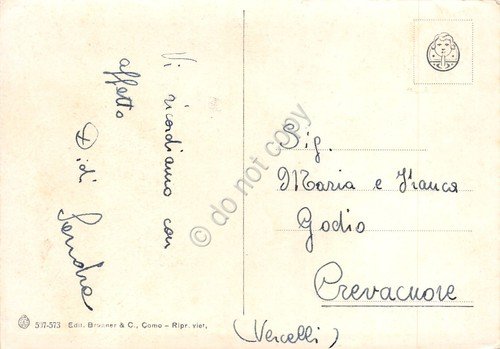 Vi ricordiamo con
affetto
Didi
Sandra
Sig.
Maria e Franca
Godio
Crevacuore
(Vercelli)
© do not copy
537-573 Edit. Brunner & C., Como – Ripr. viet.